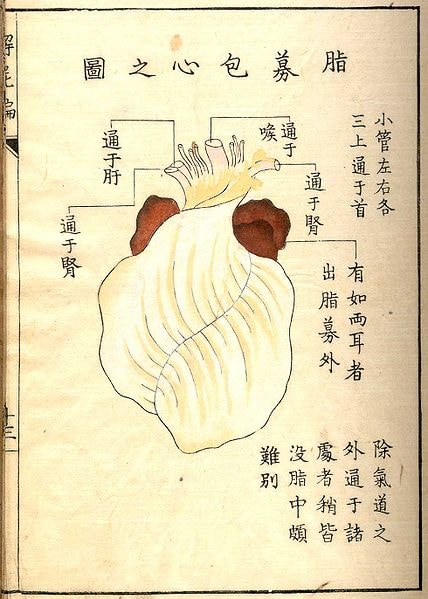 脂募包心之圖
小管左右各
三上通于首
通于
喉
通于腎
通于肝
通于腎
有如両耳者
出脂募外
除氣道之
外通于諸
處者稍皆
没脂中頗
難別
十三